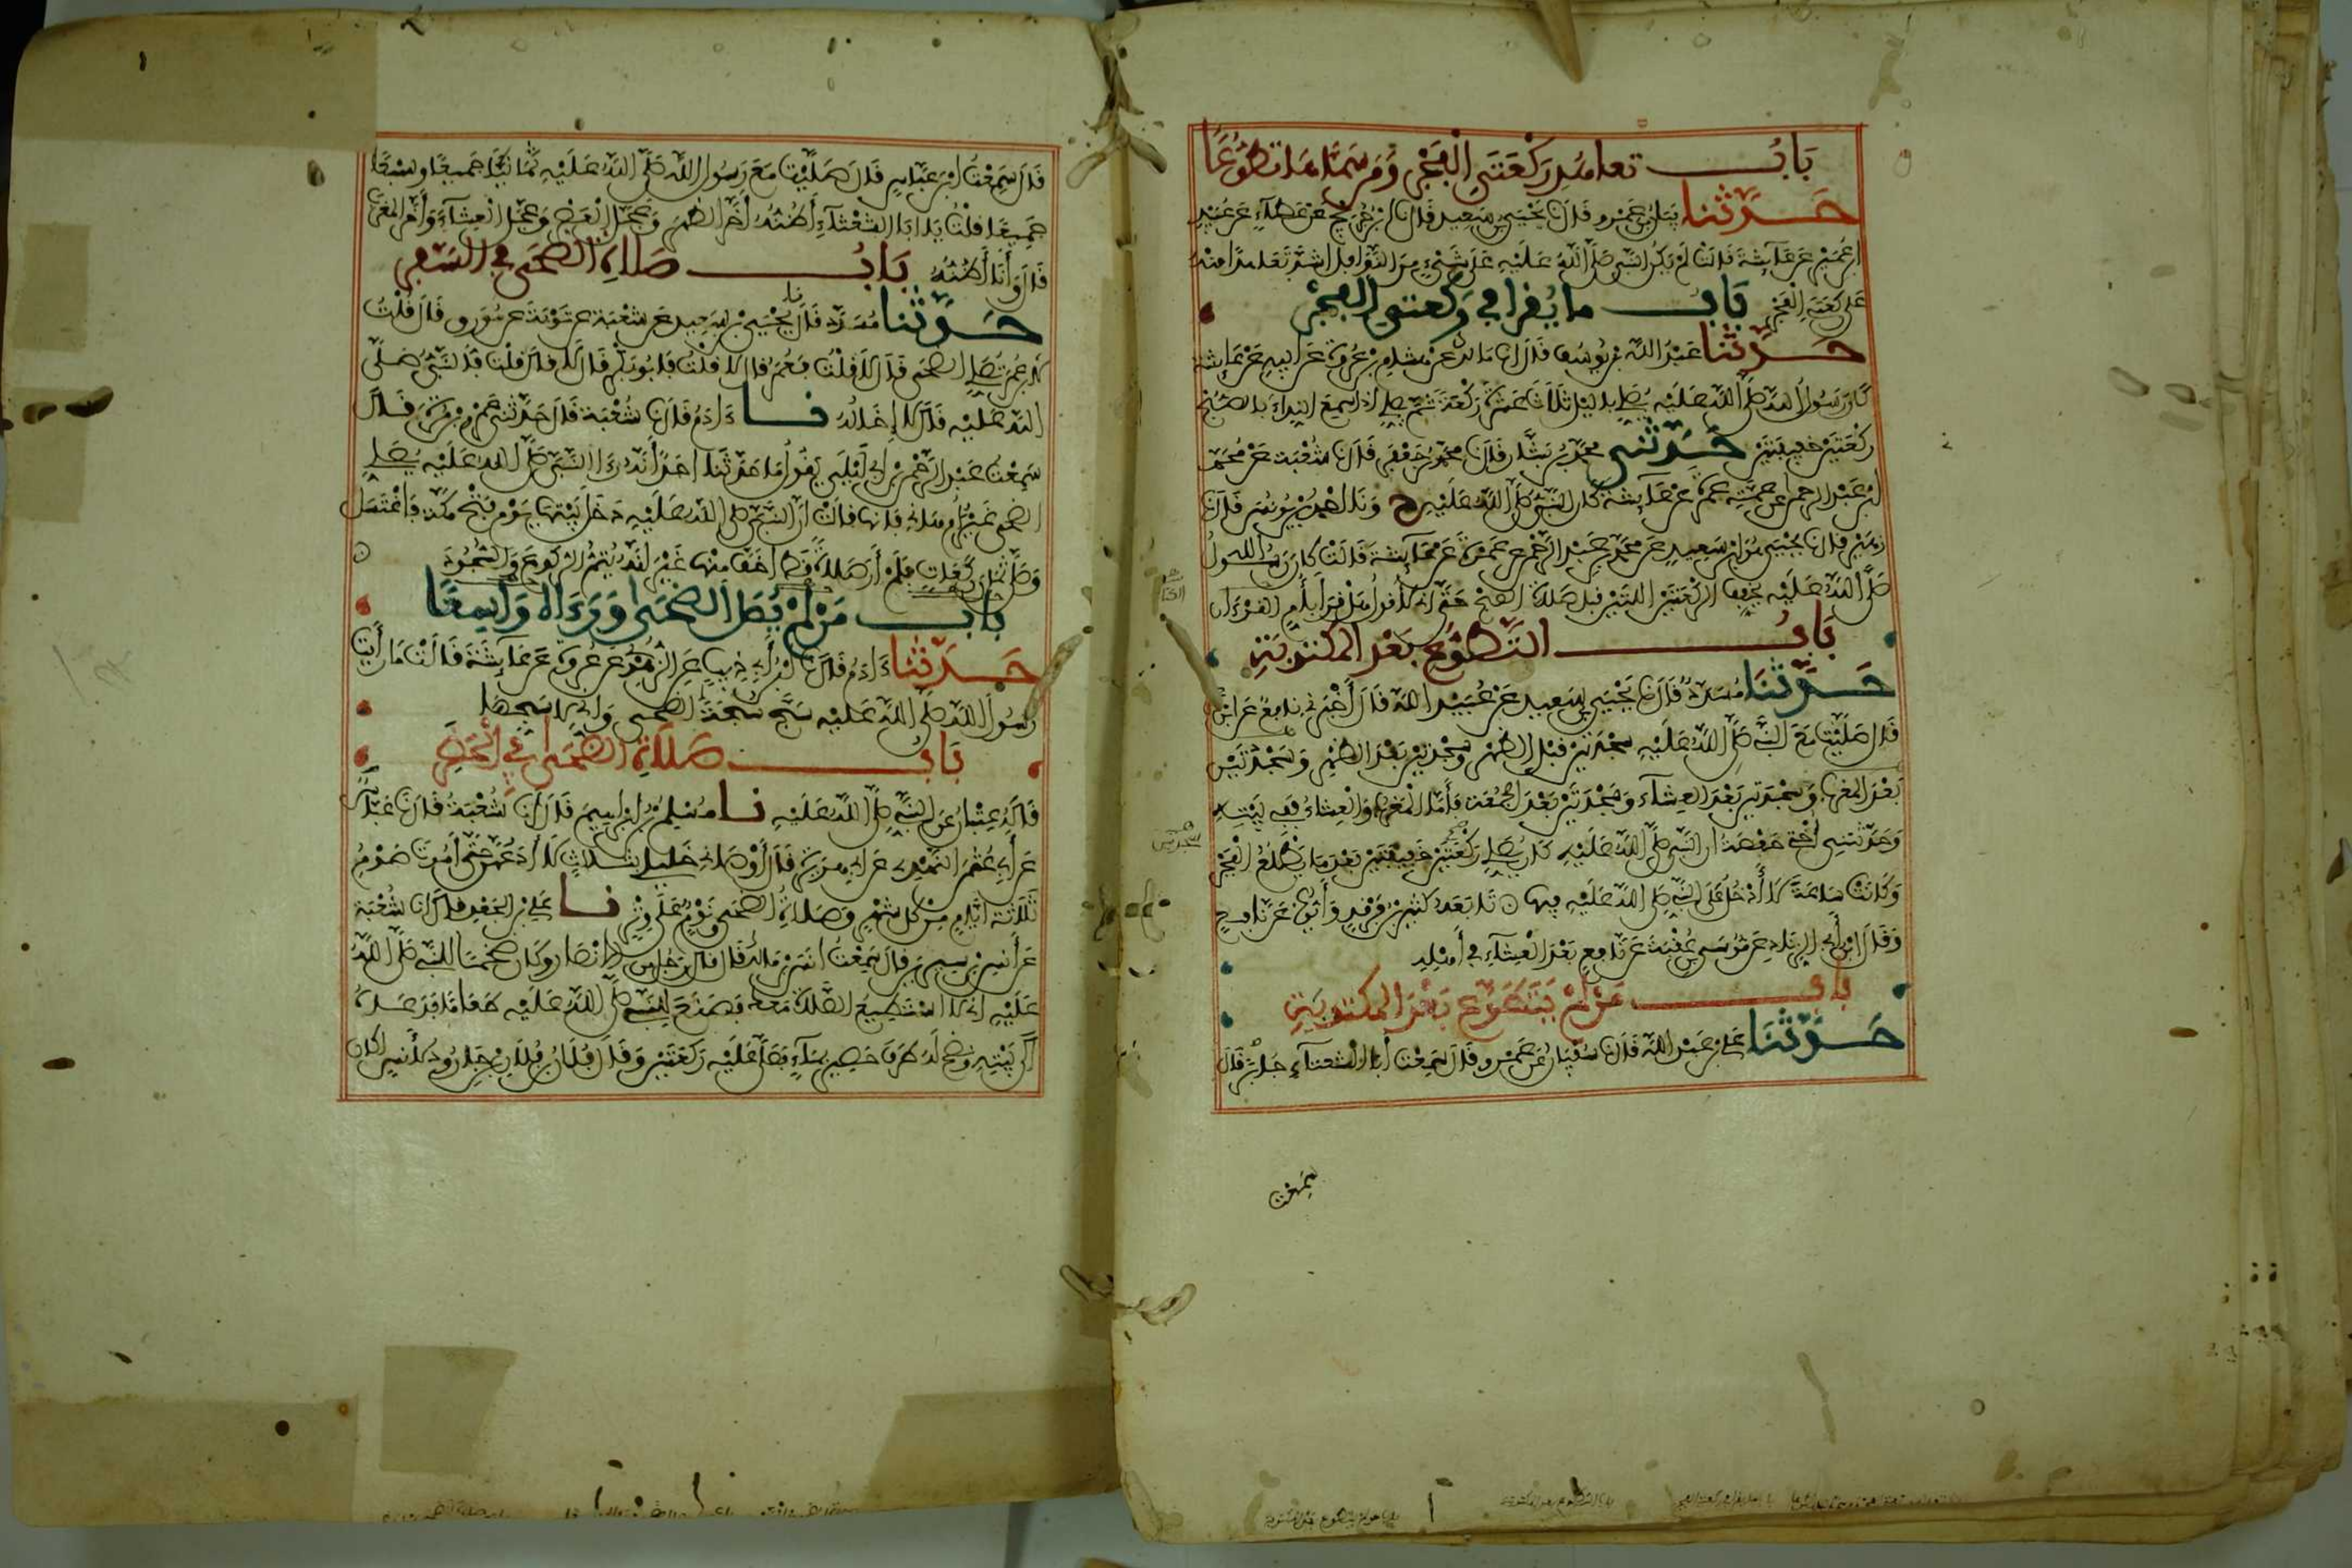 بَابُ تعاهد رَكْعَتَيِ الْفَجْرِ وَمَن سَمَّاهَا تَطَوُّعًا
حَدَّثَنَا بيان بن عَمْرٍو قَالَ نا يَحْيَى بن سَعِيد قَالَ نا ابن جُرَيْجٍ عن عَطَاءٍ عَن عُبَيْدِ
ابن عُمَيْر عن عَائشَةَ قَالَتْ لَمْ يَكُن النبي صَلَّى اللَّهُ عَلَيْهِ عَلَى شَيْءٍ مِنَ النَّوَافِل أَشَدَّ تَعَاهُدًا مِنْهُ
عَلَى رَكْعَتَيِ الْفَجْرِ بَابُ ما يُقرأ في ركعتي الفجْر
حَدَّثَنَا عَبْدُ اللَّه بن يُوسُف قَالَ نا مَالك عن هشام بن عُرْوَة عَن أبيه عَنْ عَائشة
كان رَسُولُ اللَّه صَلَّى اللَّهُ عَلَيْهِ يُصَلِّي بِالليْلِ ثَلَاثَ عَشْرَةَ رَكْعَة ثُمَّ يُصَلِّي إذا سَمِعَ النِّدَاءَ بِالصُّبْحِ
رَكْعَتَيْن خَفِيفَتَيْن حَدَّثَنِي مُحَمَّدُ بن بَشَّار قَالَ نا مُحَمَّد بن جَعْفَر قَالَ نا شُعْبَة عَن مُحَمَّد
ابْن عَبْد الرحمن عن عَمَّتِهِ عَمْرَة عَن عَائِشَة كَانَ النَّبِيُّ صَلَّى اللَّهُ عَلَيْهِ ح وَنَا أَحْمَدُ بنُ يُونُس قَالَ نا
زُهَيْر قال نا يَحْيَى هُوَ ابن سَعِيد عَن مُحَمَّد بن عَبْد الرَّحْمَن عن عَمْرَة عَن عَائشَةَ قَالَتْ كَانَ رَسُولُ
صَلَّى اللَّهُ عَلَيْه يُخَفِّفُ الرَّكْعَتَيْن اللتَيْن قبل صَلَاة الصُّبْح حَتَّى إِنِّي لَأَقُول هَلْ قَرَأَ بِأُمِّ القرءان
بَابُ التَّطَوُّع بَعْدَ المكتُوبَةِ
حَدَّثَنَا مُسَدَّدٌ قَالَ نا يَحْيَى بن سَعِيد عَن عُبَيْد اللَّه قَالَ أَخْبَرَنِي نافعٌ عَن ابن
قَالَ صَلَّيْتُ مَعَ النَّبِيِّ صَلَّى اللَّهُ عَلَيْهِ سَجْدَتَيْن قَبْلَ الظُّهْرِ وسَجْدَتَيْن بَعْدَ الظُّهْرِ وَسَجْدَتَيْن
بَعْدَ المَغْرِب وَسَجْدَتَيْن بَعْدَ العِشَاء وَسَجْدَتَيْن بَعْدَ الجُمُعَة فَأَمَّا الْمَغْرِب وَالْعِشَاءُ فَفِي بَيْتِهِ
وَحَدَّثَتْنِي أُخْتِي حَفْصَةُ ان النَّبِي صَلَّى اللَّهُ عَلَيْهِ كان يُصَلِّي رَكْعَتَيْنِ خَفِيفَتَيْن بَعْدَ مَا يَطْلُعُ الْفَجْرُ
وَكَانَتْ سَاعَةً لَا أَدْخُلُ عَلَى النَّبِيِّ صَلَّى اللَّهُ عَلَيْهِ فِيهَا تَابَعَهُ كَثِيرُ بن فَرْقَدٍ وَأَيُّوبُ عَن نَافِعٍ
وَقَالَ ابْنُ أَبِي الزِّنَادِ عَن مُوسَى بن عُقْبَةَ عَن نَافِعٍ بَعْدَ الْعِشَاءِ فِي أَهْلِهِ
بَابُ مَنْ لَمْ يَتَطَوَّعْ بَعْدَ المكتوبَةِ
حَدَّثَنَا عَلي بن عَبْد اللَّه قَالَ نا سُفْيَانُ عَن عَمْرٍو قَالَ سَمِعْتُ أَبَا الشعثاءِ جَابِرًا قَالَ
سَمِعْتُ
قَالَ سَمِعْتُ ابْنَ عَبَّاسٍ قَالَ صَلَّيْتُ مَعَ رَسُول اللَّه صَلَّى اللَّهُ عَلَيْهِ ثَمَانِيًا جَمِيعًا وسَبْعًا
جَمِيعًا قُلْتُ يَا أَبَا الشَّعْثَاءِ أَظُنُّهُ أَخَّرَ الظُّهْرَ وَعَجَّلَ الْعَصْرَ وَعَجَّلَ الْعِشَاءَ وَأَخَّرَ المغْرِبَ
قَالَ وَأَنَا أَظُنُّهُ بَابُ صَلَاةِ الضُّحَى فِي السَّفَرِ
حَدَّثَنَا مُسَدَّد قَالَ نا يَحْيَى بنُ سَعِيد عَن شُعْبَة عن تَوْبَةَ عن مُوَرِّق قَالَ قُلْتُ
لابن عُمَرَ تُصَلِّي الضُّحَى قَالَ لا قُلْتُ فَعُمَرُ قال لا قلتُ فَأَبُو بَكْر قَالَ لا قال قلتُ فَالنَّبِيُّ صَلَّى
اللَّهُ عَلَيْهِ قَالَ لَا إِخَالُهُ نا ءَادَمُ قَالَ نا شُعْبَة قَالَ حَدَّثَنِي عَمْرو بْنُ مُرَّةَ قَالَ
سَمِعْتُ عَبْد الرَّحْمَن بْنَ أَبِي لَيْلَى يَقُولُ مَا حَدَّثَنَا أَحَدٌ أَنَّهُ رَأَى النَّبِيَّ صَلَّى اللَّهُ عَلَيْهِ يُصَلِّي
الضحى غَيْرُ أُمِّ هَانِئٍ فَإِنَّهَا قَالَتْ إن النَّبِيَّ صَلَّى اللَّهُ عَلَيْهِ دَخَلَ بَيْتَهَا يَوْمَ فَتْحِ مَكَّةَ فَاغْتَسَلَ
وَصَلَّى ثَمَانِيَ رَكَعَاتٍ فَلَمْ أَرَ صَلَاةً قَطُّ أَخَفَّ مِنْهَا غَيْرَ أَنَّهُ يُتِمُّ الرُّكُوعَ وَالسُّجُودَ
بَابُ مَنْ لَمْ يُصَلِّ الضُّحَى وَرَءَاهُ وَاسِعًا
حَدَّثَنَا ءَادَمُ قَالَ نا ابْنُ أَبِي ذِيبٍ عَن الزُّهْرِيِّ عن عُرْوَةَ عَن عَائِشَةَ قَالَتْ مَا رَأَيْتُ
رَسُولَ اللَّه صَلَّى اللَّهُ عَلَيْهِ سَبَّحَ سُبْحَةَ الضُّحَى وَإِنِّي لأسَبِّحُهَا
بَابُ صَلَاةِ الضُّحَى فِي الْحَضَرِ
قَالَهُ عِتْبَانُ عن النَّبِيِّ صَلَّى اللَّهُ عَلَيْهِ نا مُسْلِمُ بْنُ إِبْرَاهِيمَ قَالَ نا شُعْبَةُ قَالَ نا عَبَّاس
عَن أَبِي عُثْمَن النَّهْدِي عَن أبي هريرة قَالَ أَوْصَانِي خَلِيلِي بِثَلَاثٍ لَا أَدَعُهُنَّ حَتَّى أَمُوتَ صَوْمِ
ثَلَاثَة أَيَّامٍ مِنْ كُلِّ شَهْرٍ وَصَلَاة الضُّحَى وَنَوْمٍ عَلَى وِتْرٍ نا عَلي بن الجَعْدِ قال نا شُعْبَة
عَن أَنَسِ بن سِيرِين قَالَ سَمِعْتُ أنَسَ بن مَالِكٍ قَالَ قال رَجُلٌ من الأَنْصَار وكَانَ ضَخْمًا للنَّبِيِّ صَلَّى اللَّهُ
عَلَيْهِ إني لا أَسْتَطِيعُ الصَّلَاةَ مَعَكَ فَصَنَعَ لِلنَّبِيِّ صَلَّى اللَّهُ عَلَيْهِ طَعَامًا فَدَعَاهُ
إلى بَيْتِهِ وَنَضَحَ لَهُ طَرَفَ حَصِيرٍ بِمَاءٍ فَصَلَّى عَلَيْهِ رَكْعَتَيْن وَقَالَ فُلَانُ بن فُلَانِ بن جَارُودٍ لأَنَسٍ أكان